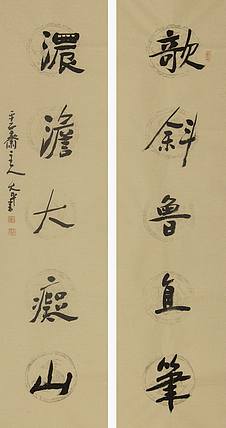 欹斜魯直筆
濃澹大癡山
齋主人